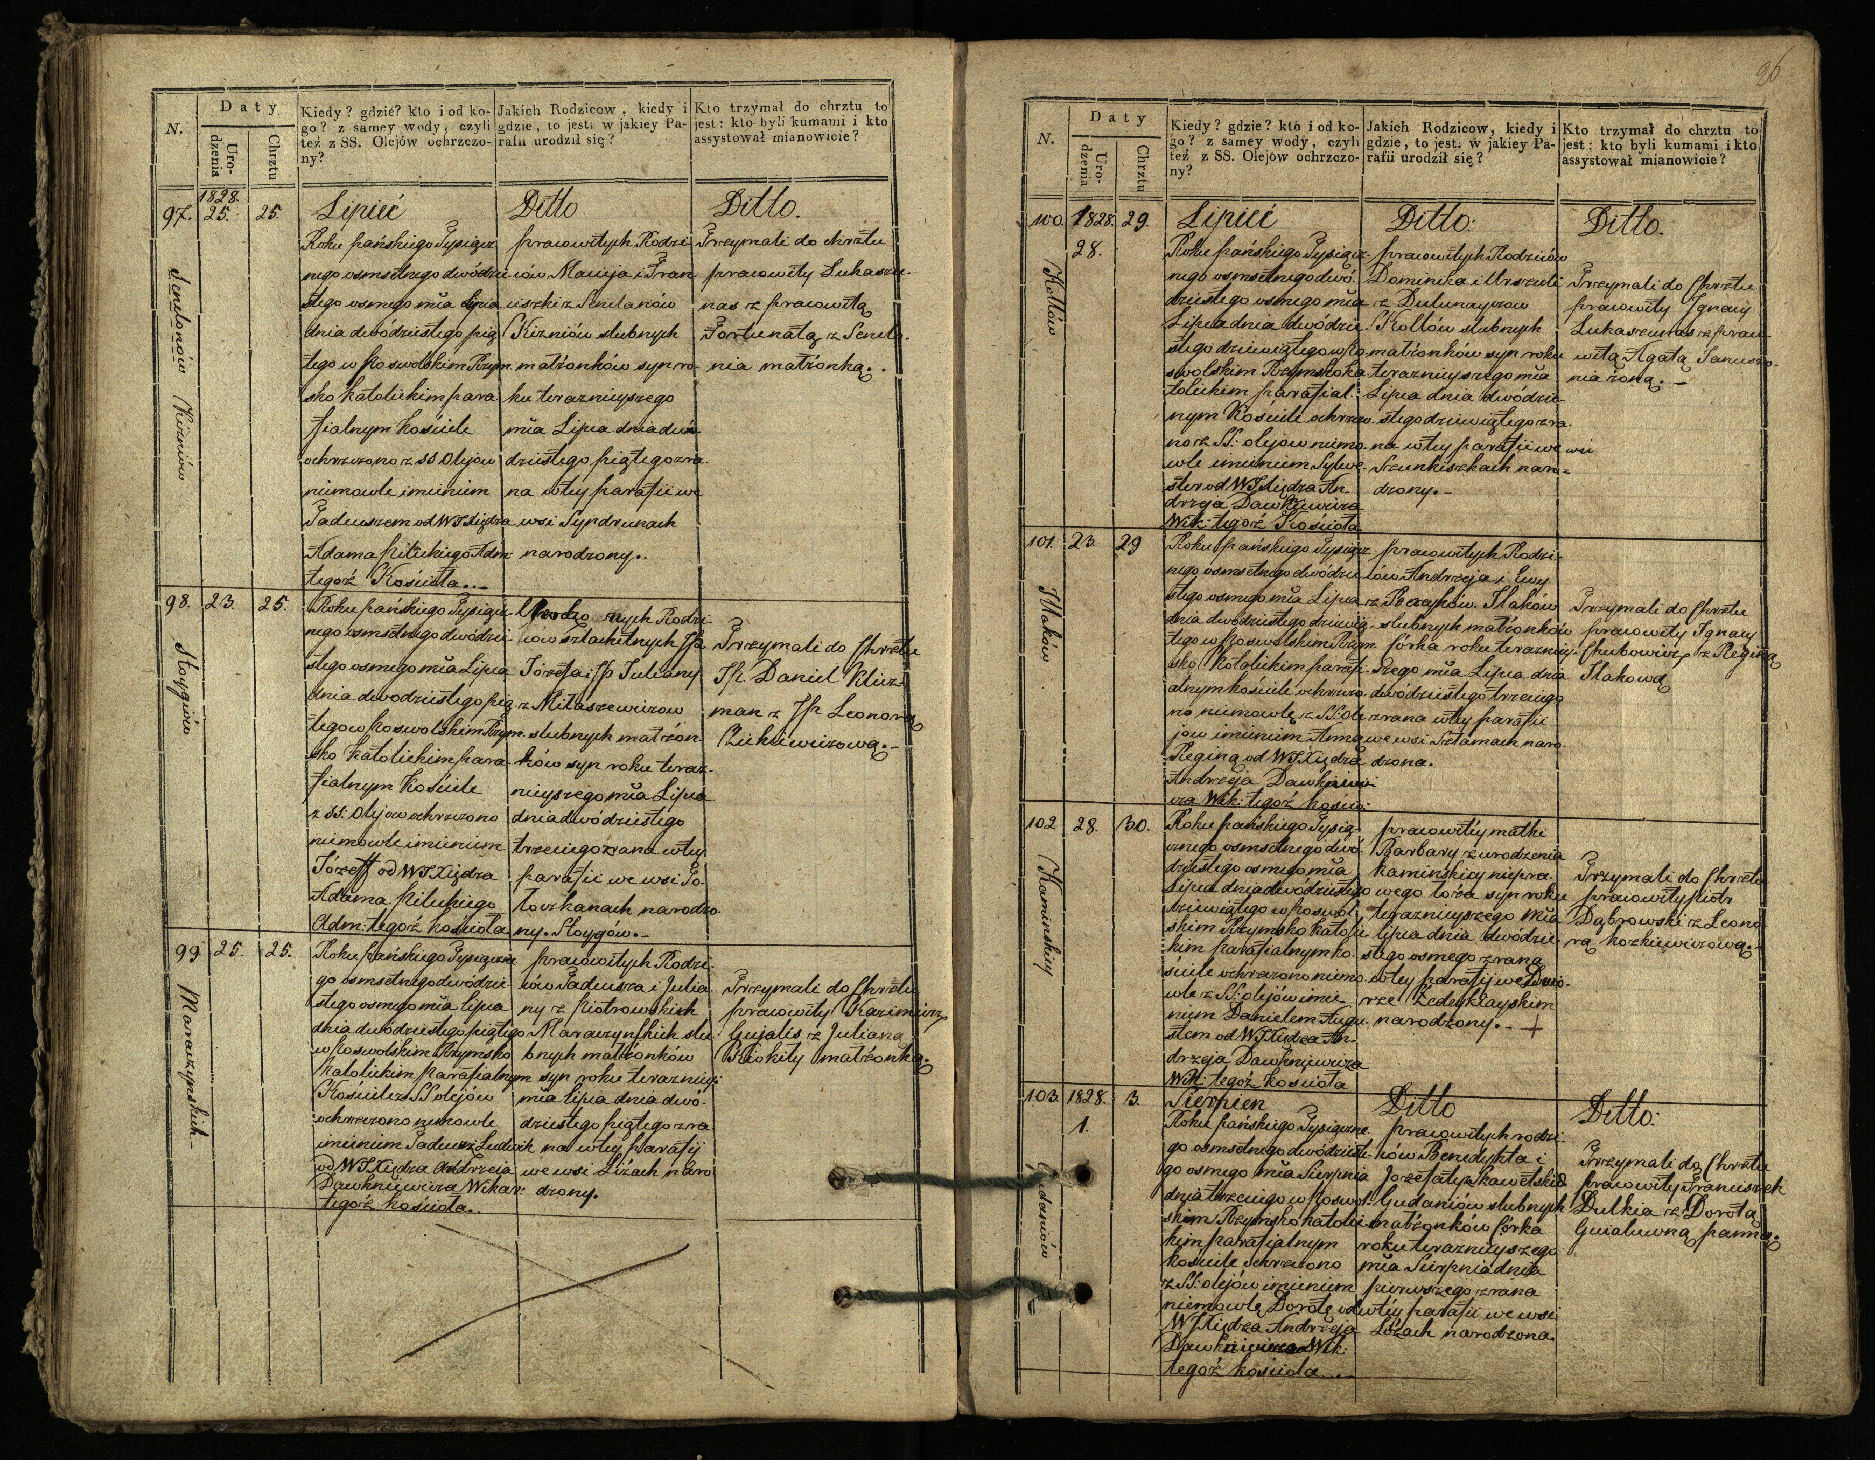 N.
Daty
Urodzenia
Chrztu
Kiedy? gdzie? kto i od ko-
go? z samey wody, czyli
też z SS. Olejów ochrzczo-
ny?
Jakich Rodzicow, kiedy i
gdzie, to jest: w jakiey Pa-
rafii urodził się?
Kto trzymał do chrztu to
jest: kto byli kumami i kto
assystował mianowicie?
97.
1828.
25.
25
Lipiec
Roku pańskiego Tysiącz
nego osmsetnego dwódzie
stego osmego mca Lipca
dnia dwódziestego pią
tego w Poswolskim Rzym
sko katolickim para
fialnym kościele
ochrzczono z SS Olejów
niemowle imieniem
Tadeuszem od WJ Xiędza
Adama Kitickiego Adm:
tegoż Kościoła.
Ditto
pracowitych Rodzi
ców Macieja i Fran
ciszki z
slubnych
małżonków syn ro
ku teraznieyszego
mca Lipca dnia dwó
dziestego piątego zra
na w tey parafii we
wsi Syndrunach
narodzony.
Ditto.
Trzymali do chrztu
pracowity Łukasze
nas z pracowitą
Fortunatą z
nia małżonką.
98.
23.
25.
Stoygwiów
Roku pańskiego Tysiącz
nego osmsetnego dwódzie
stego osmego mca Lipca
dnia dwodziestego pią
tego w Poswolskim Rzym
sko katolickim para
fialnym Kościele
z SS: Olejow ochrzczono
niemowle imieniem
Józeff od WJ Xiędza
Adama Kitickiego
Adm: tegoż kościoła
Urodzonych Rodzi
ców szlachetnych JP.
Józefa i JP Julianny
z Mitaszewiczow
slubnych małżon
ków syn roku teraz-
nieyszego mca Lipca
dnia dwódziestego
trzeciego zrana w tey
parafii we wsi To
toczkanach narodzo
ny. Stoygow.
Trzymali do Chrztu
JP. Daniel Klicz
man z JP Leonorą
99
25.
25.
Maraczynskich
Roku pańskiego Tysiączne
go osmsetnego dwódzie
stego osmego mca lipca
dnia dwódziestego piątego
w Poswolskim Rzymsko
katolickim parafialnym
Kościele z SS olejów
ochrzczono niemowle
imieniem Tadeusz Ludwik
od WJ Xiędza Andrzeia
Dawkniewicza Wikar:
tegoż kościoła.
pracowitych Rodzi
ców Tadeusza i Julia
ny z Piotrowskich
Maraczynskich slu
bnych małżonków
syn roku teraznieysz
mca lipca dnia dwó
dziestego piątego zra
na w tey parafij
we wsi Łiżach naro
dzony.
Trzymali do Chrztu
pracowity Kazimierz
Gujalis z Julianą
małżonką.
26
N.
Daty
Urodzenia
Chrztu
Kiedy? gdzie? kto i od ko-
go? z samey wody, czyli
też z SS. Olejów ochrzczo-
ny?
Jakich Rodzicow, kiedy i
gdzie, to jest: w jakiey Pa-
rafii urodził się?
Kto trzymał do chrztu to
jest: kto byli kumami i kto
assystował mianowicie?
100.
1828.
28.
29.
Koltów
Lipiec
Roku pańskiego Tysiącz
nego osmsetnego dwó
dziestego osmego mca
Lipca dnia dwódzie
stego dziewiątego w Po
swolskim Rzymsko ka
tolickim parafial
nym Kościele ochrzczo
no z SS: olejow niemo
wle imieniem Sylwe
ster od WJ Xiędza An
drzeja Dawkniewicza
Wik: tegoż Kościoła
Ditto.
pracowitych Rodziców
Dominika i Urszuli
Koltów slubnych
małżonków syn roku
teraznieyszego mca
Lipca dnia dwódzie
stego dziewiątego zra
na w tey parafii we wsi
Szunkiszkach naro=
dzony.
Ditto.
Trzymali do Chrztu
pracowity Ignacy
Łukaszewas z praco
witą Agatą Januszo
nia żoną.
101.
23
29
Jtaków
Roku pańskiego Tysiącz
nego osmsetnego dwódzie
stego osmego mca Lipca
dnia dwódziestego dziewią
tego w Poswolskim Rzym
sko Katolickim parafi
alnym kościele ochrzczo
no niemowlę z SS: Ole
jow imieniem Anna
Reginą od WJ Xiędza
Andrzeja Dawkniewi
cza Wik: tegoż kościo:
pracowitych Rodzi
ców Andrzeja i Ewy
slubnych małżonków
córka roku teraznie
szego mca Lipca dnia
dwódziestego trzeciego
zrana w tey parafii
we wsi Sztamach naro
dzona.
Trzymali do Chrztu
pracowity Ignacy
z Reginą
Jtakową
102
28.
30.
Kaminskiey
Roku pańskiego Tysią
cznego osmsetnego dwó
dziestego osmego mca
Lipca dnia dwódziestego
dziewiątego w Poswol
skim Rzymsko katolic
kim parafialnym ko
ściele ochrzczono niemo
wle z SS: olejów imie
niem Danielem Augu
stem od WJ Xiędza An
drzeja Dawkniewicza
Wik: tegoż kościoła
pracowitey matki
Barbary z urodzenia
kamińskiey niepra
wego łoża syn roku
teraznieyszego mca
lipca dnia dwódzie
stego osmego zrana
w tey parafij we Dwo
rze
narodzony. +
Trzymali do Chrztu
pracowity Piotr
Dąbrowski z Leono
rą kozkiewiczową.
103.
1828.
1.
3.
Gudaniów
Sierpien
Roku pańskiego Tysiączne
go osmsetnego dwódzieste
go osmego mca Sierpnia
dnia trzeciego w Poswol
skim Rzymsko katolic
kim parafialnym
kościele ochrzczono
z SS: olejów imieniem
niemowlę Dorotę od
WJ Xiędza Andrzeja
Dawkniewicza Wik:
tegoż kościoła.
Ditto
pracowitych rodzi
ców Benedykta i
Jozefaty z
Gudaniów slubnych
małżonków córka
roku teraznieyszego
mca Sierpnia dnia
pierwszego zrana
w tey parafii we wsi
Łóżach narodzona.
Ditto.
Trzymali do Chrztu
pracowity Franciszek
Dulkia z Dorotą
panną.